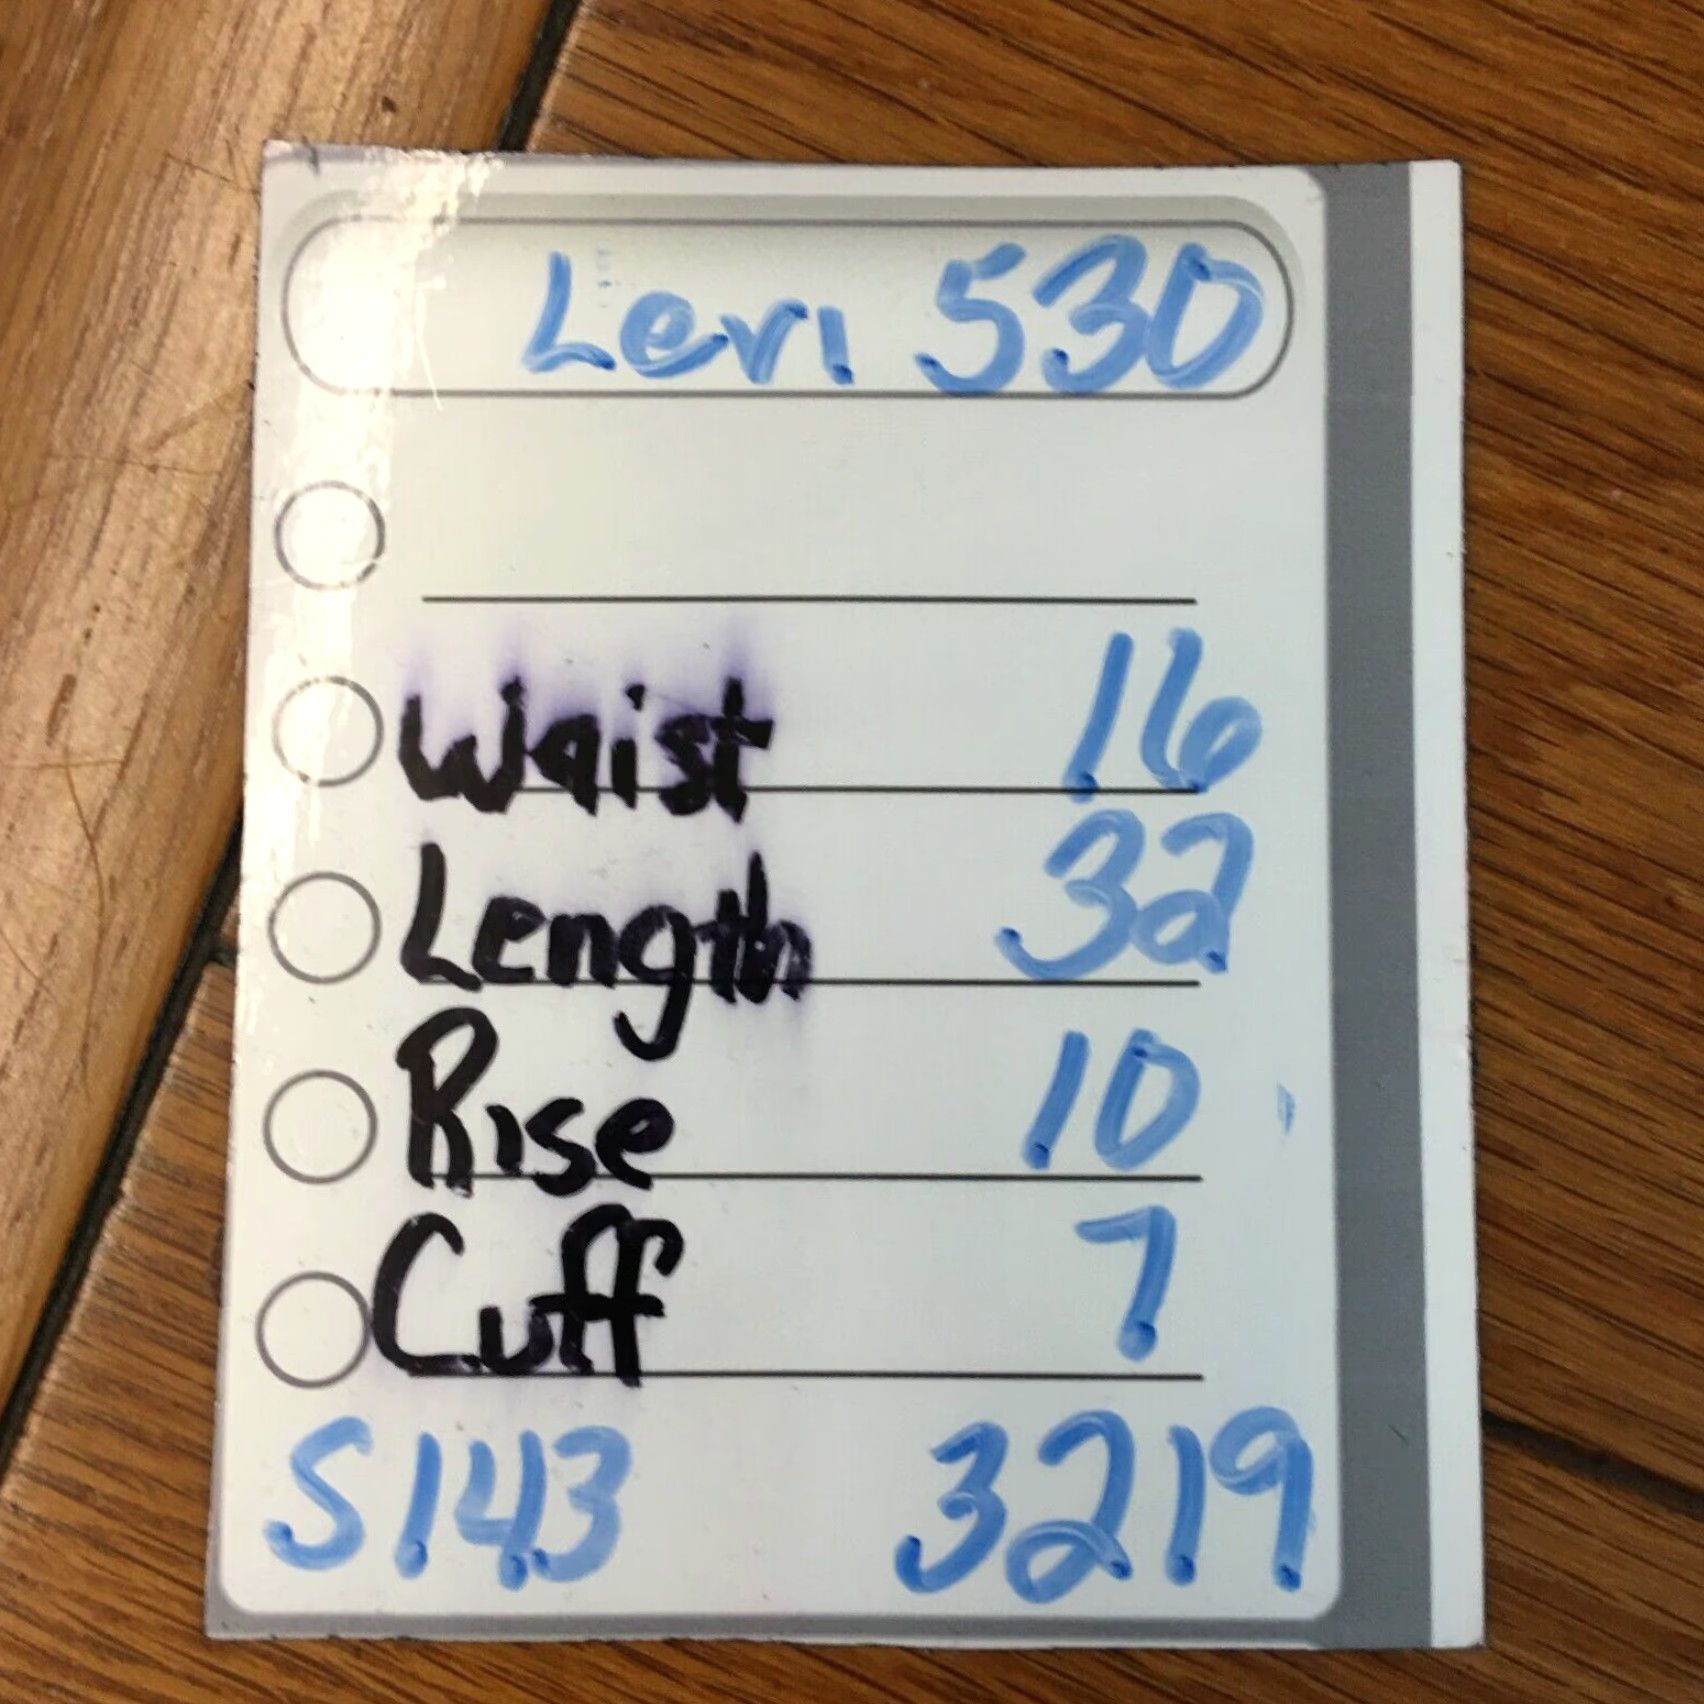 Levi 530
Waist 16
Length 32
Rise 10
Cuff 7
S143 3219